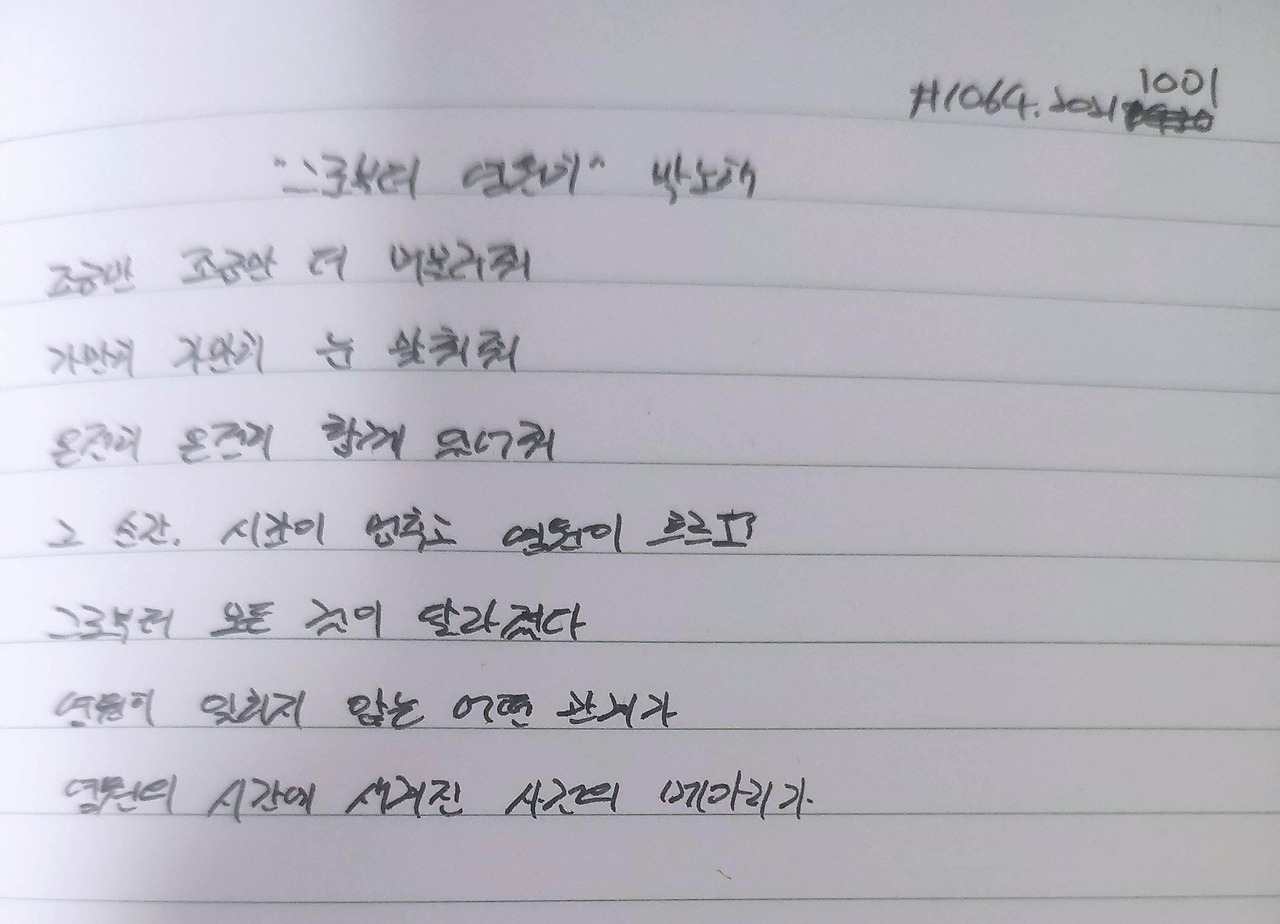 #1064. 20211001
"그로부터 영원히" 박노해
조금만 조금만 더 머물러줘
가만히 가만히 눈 맞춰줘
온전히 온전히 함께 있어줘
그 순간, 시간이 멈추고 영원이 흐르고
그로부터 모든 것이 달라졌다
영원히 잊히지 않는 어떤 관계가
영원의 시간에 새겨진 사건의 메아리가